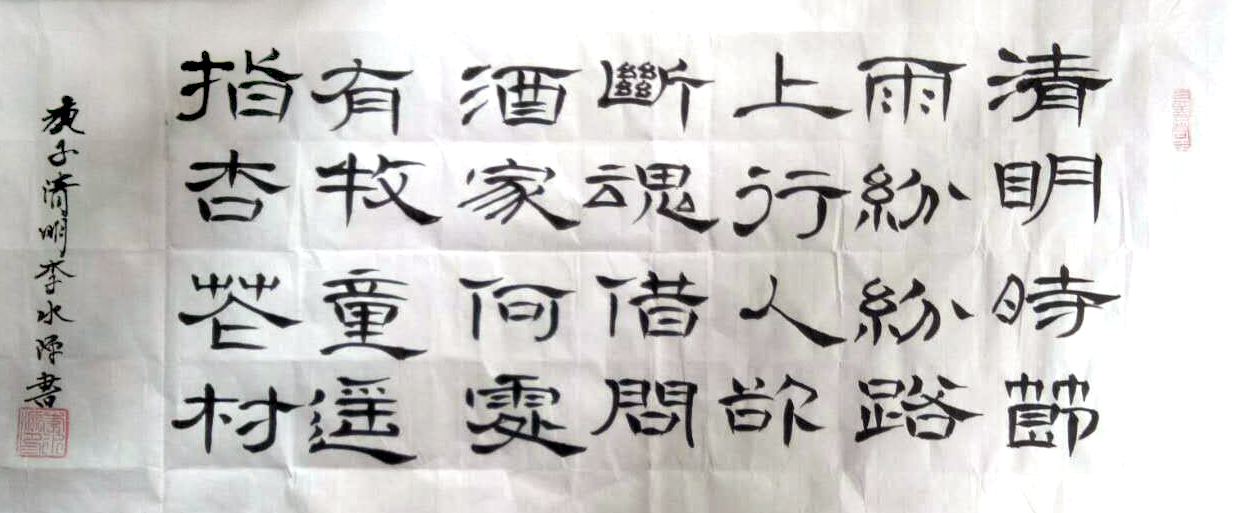 清明時節
雨紛紛路
上行人欲
斷魂借問
酒家何處
有牧童遥
指杏花村
庚子清明李水書